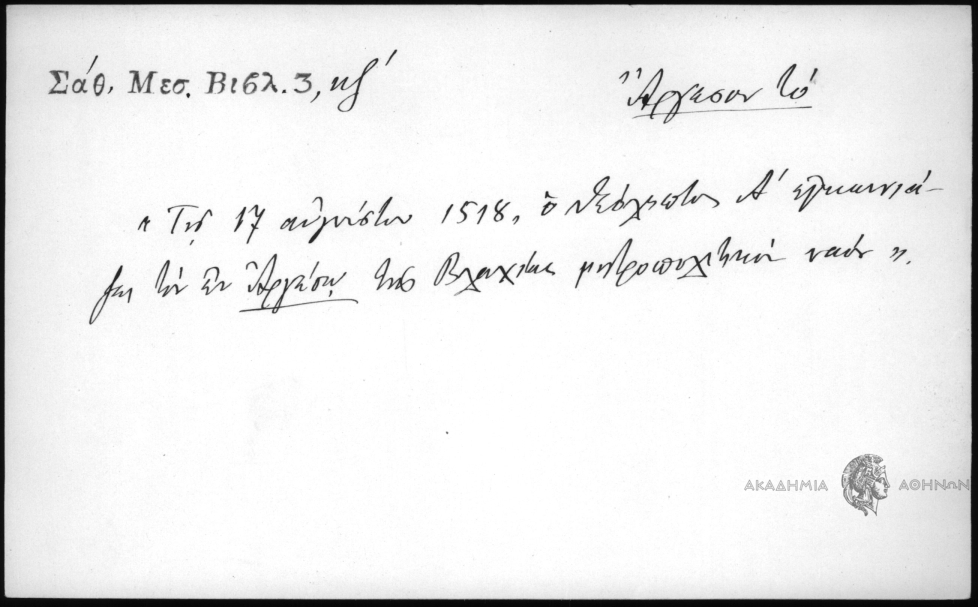 Σάθ. Μεσ. Βιβλ. 3, κζ΄
Ἄργεσον τὸ
« Τῇ 17 αὐγούστου 1518, ὁ Θεόληπτος Α΄ ἐγκαινιά-
ζει τὸν ἐν Ἀργέσῳ τῆς Βλαχίας μητροπολιτικὸν ναόν ».
ΑΚΑΔΗΜΙΑ ΑΘΗΝΩΝ